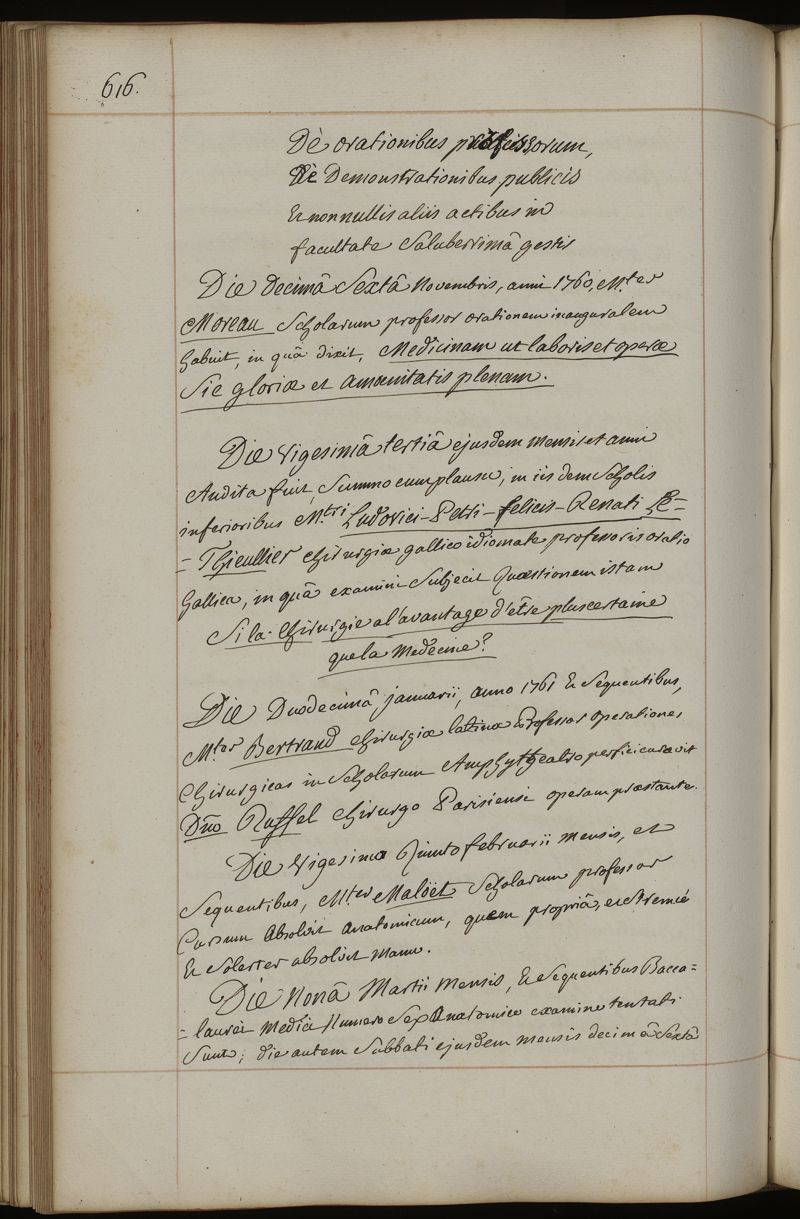 616.
Dè orationibus professorum,
Dè Demonstrationibus publicis
Et non nullis aliis actibus in
facultate Saluberrimâ gestis
Die decimâ Sextâ Novembris, anni 1760, M.ter
Moreau Scholarum professor orationem inauguralem
habuit, in quâ dixit, Medicinam ut laboris et operæ
Sic gloriæ et amœnitatis plenam.
Die vigesimâ tertiâ ejusdem mensis et anni
Audita fuit, Summo cum plausu, in iisdem Scholis
inferioribus M.tri Ludovici-Petri-felicis-Renati Le=
=Thieullier Chirurgiæ gallico idiomate professoris oratio
Gallica, in quâ examini Subjecit Quæstionem istam
Si la Chirurgie a l'avantage d'être plus certaine
que la Medecine?
Die Duodecimâ januarii, anno 1761 Et Sequentibus,
M.ter Bertrand Chirurgiæ latinæ Professor operationes
Chirurgicas in Scholarum Amphytheatro perfici curavit
Dño Ruffel Chirurgo Parisiensi operam præstante.
Die vigesima Quinto februarii mensis, et
Sequentibus, M.ter Maloët Scholarum professor
Cursum absolvit anatomicum, quem propriâ, et Stremiè
Et Solerter absolvit manu.
Die Nonâ Martii mensis, Et Sequentibus Bacca=
=laurei Medici Numero Sex Anatomico examine tentati
Sunt; die autem Sabbati ejusdem mensis decimâ Sextâ